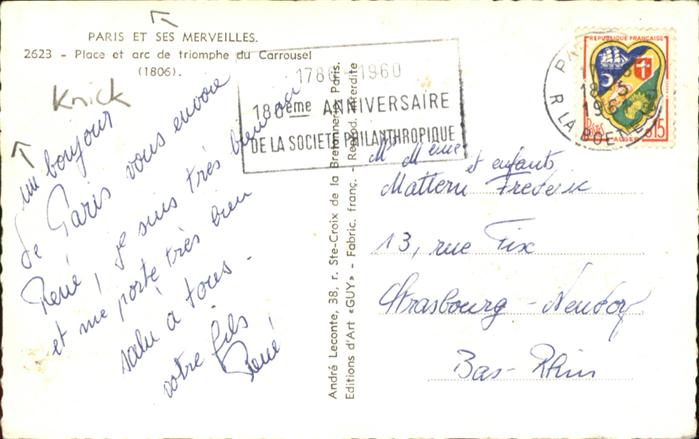 PARIS ET SES MERVEILLES.
2623 - Place et arc de triomphe du Carrousel
(1806).
Knick
un bonjour
de Paris vous envoie
René, je suis très bien ici
et me porte très bien
salu à tous.
votre fils
René
André Leconte, 38, r. Ste-Croix de la Bretonnerie, Paris.
Editions d'Art «GUY» - Fabric. franc. - Reprod. interdite
1780-1960
180ème ANNIVERSAIRE
DE LA SOCIETE PHILANTHROPIQUE
REPUBLIQUE FRANÇAISE
15
R LA BOETIE
Mr Mme et enfants
Mattern Frederic
13, rue Fix
Strasbourg - Neudorf
Bas-Rhin